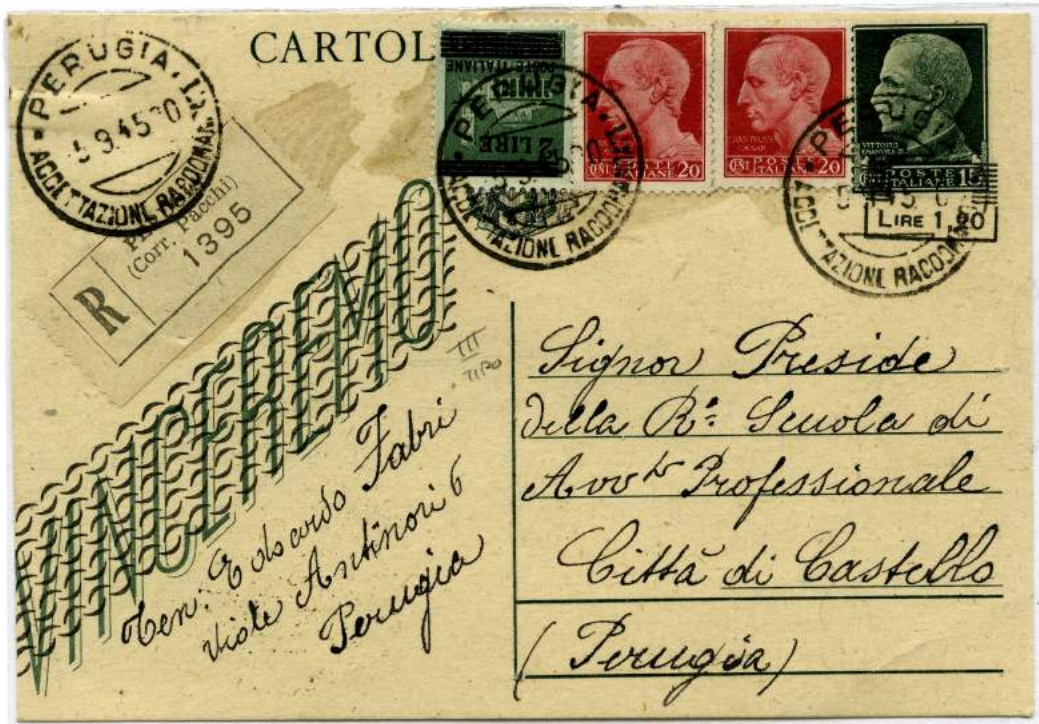 CARTOL
PERUGIA
9.45
ACCETTAZIONE RACCOMAN
(Corr. Pacchi)
1395
R
POSTE ITALIANE
2 LIRE
POSTE ITALIANE 20
POSTE ITALIANE 20
POSTE ITALIANE 15
PERUGIA
ACCETTAZIONE RACCOMAN
LIRE 1,20
VINCEREMO
III
TIPO
Ten. Edoardo Fabri
viale Antinori 6
Perugia
Signor Preside
della Rª Scuola di
Avvto Professionale
Città di Castello
(Perugia)